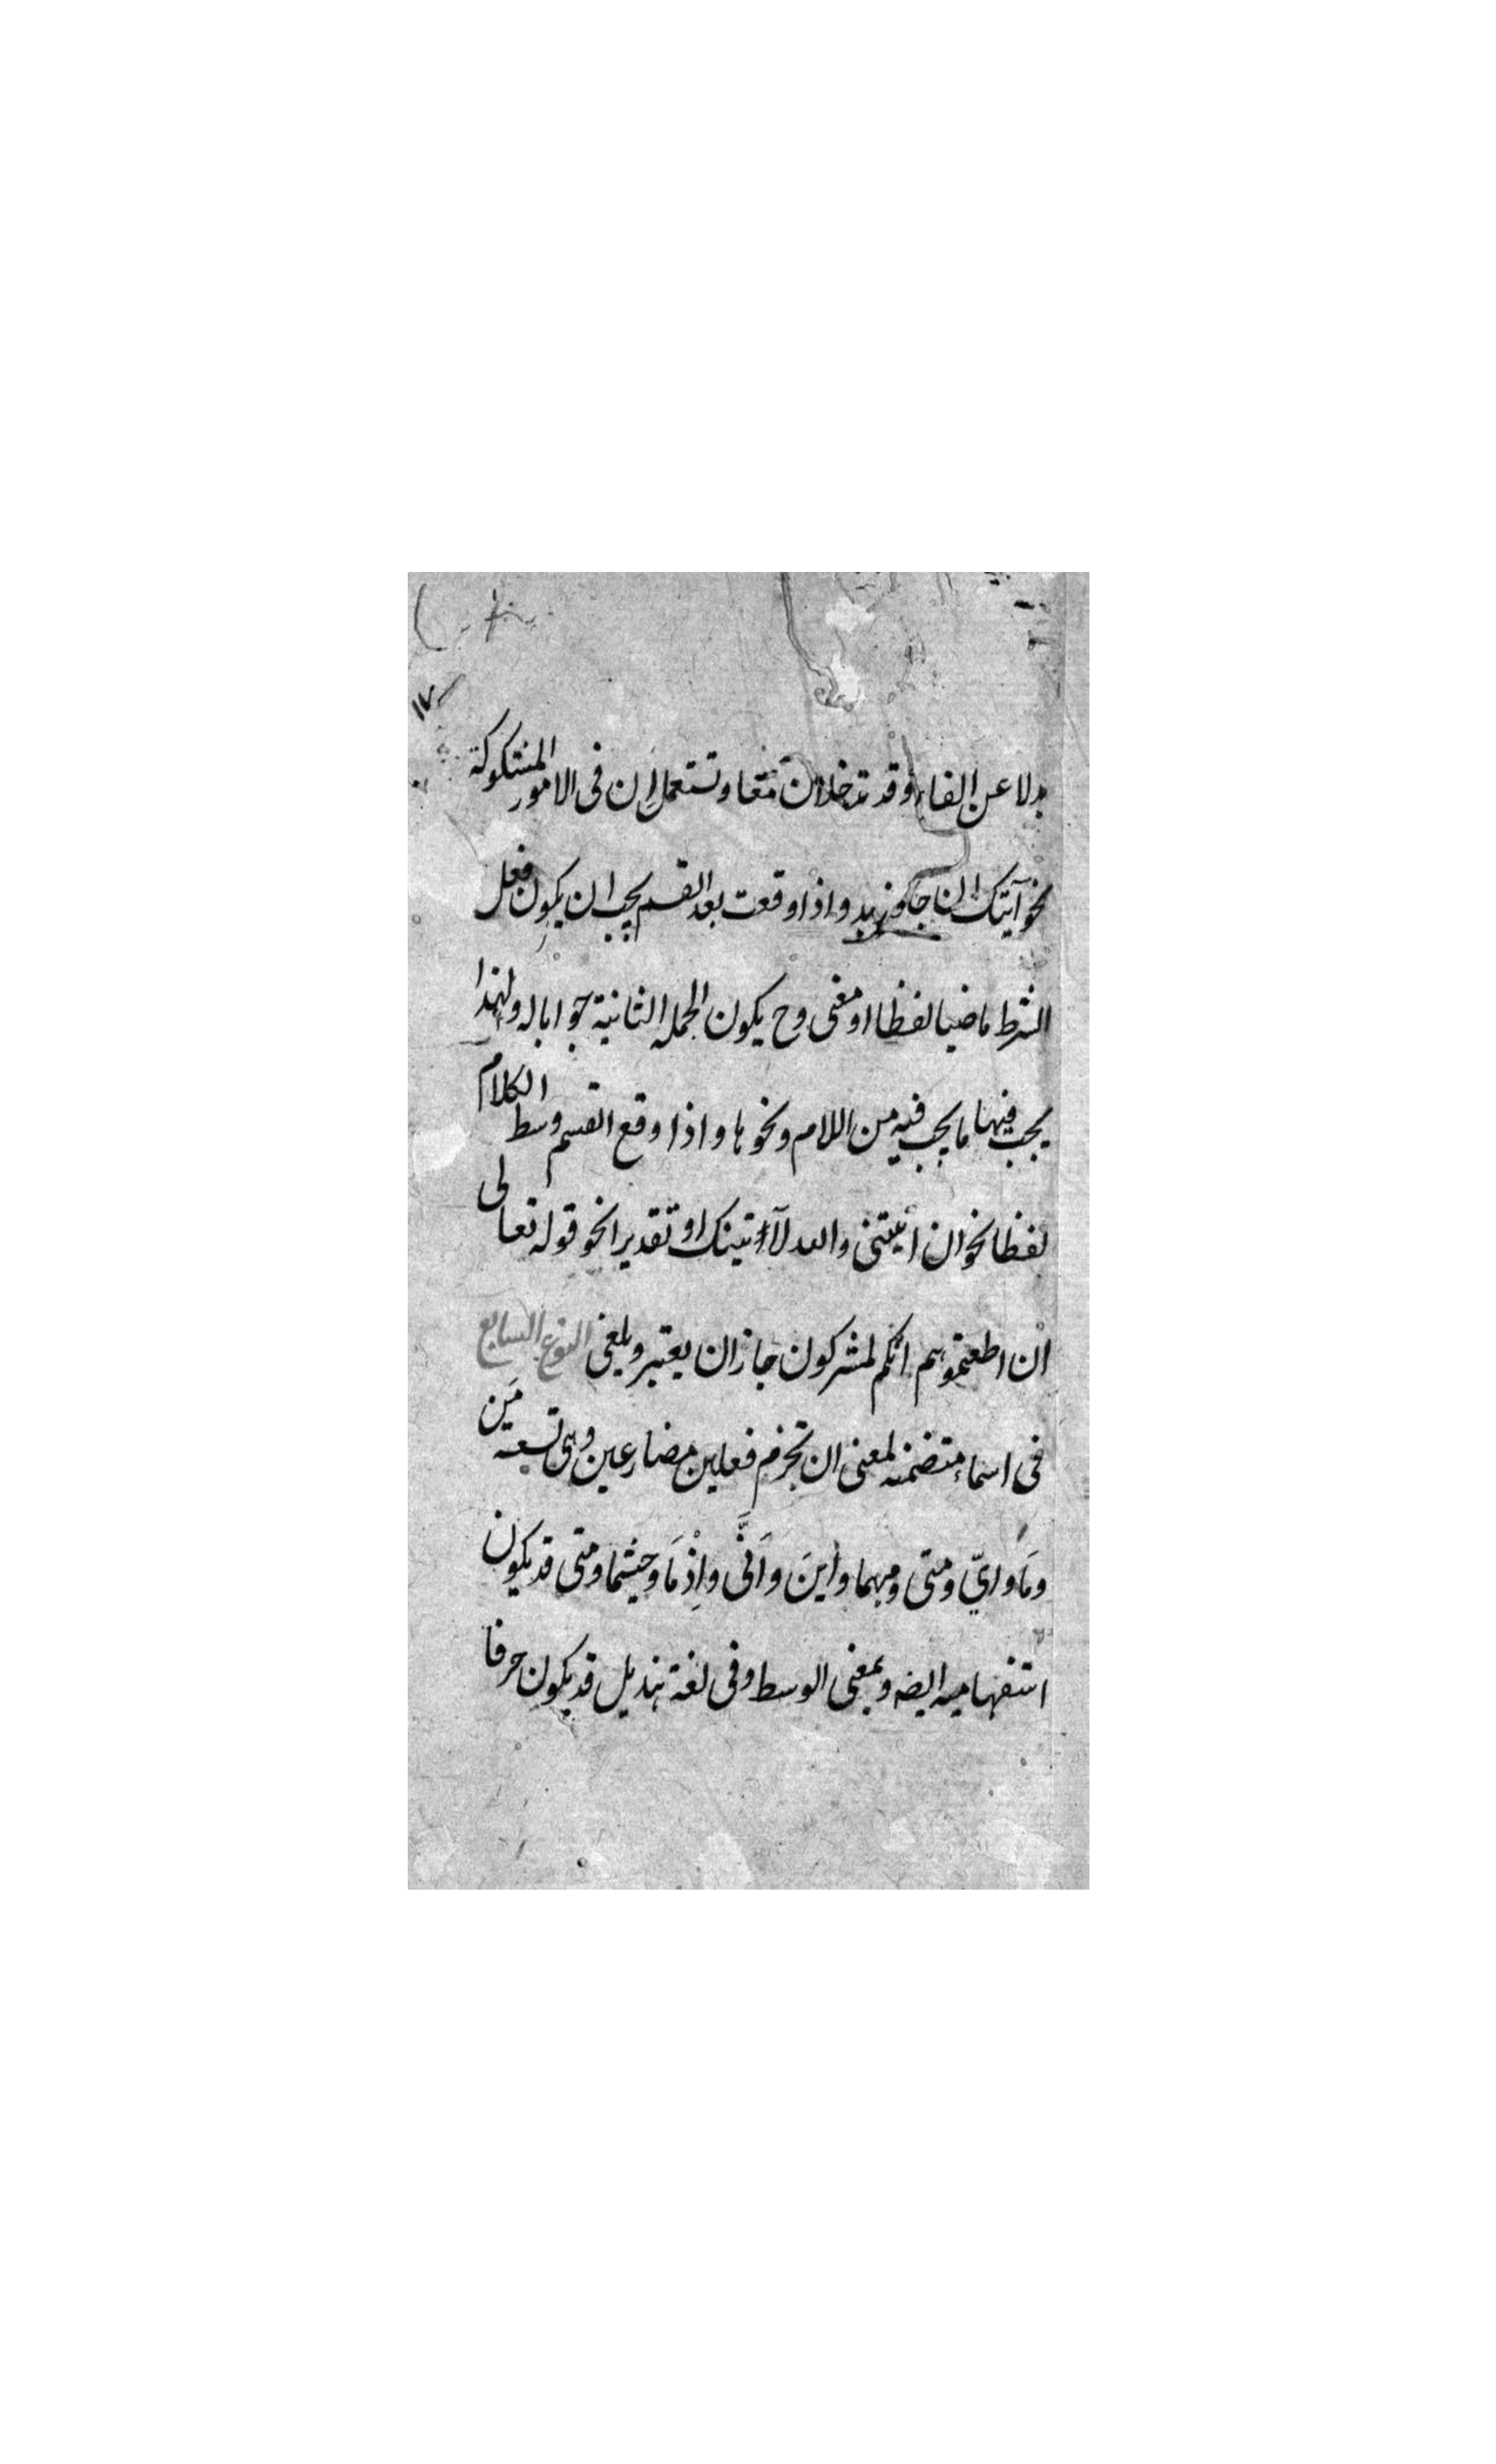 ١٧
بدلا عن الفاء وقد تدخلان معا وتستعمل إن فى الامور المشكوكة
نحو آتيك ان جاء زيد واذا وقعت بعد القسم يجب ان يكون فعل
الشرط ماضيا لفظا او معنى وح يكون الجملة الثانية جوابا له ولهذا
يجب فيها ما يجب فيه من اللام ونحوها واذا وقع القسم وسط الكلام
لفظا نحو ان اتيتنى والله لآتينك او تقديرا نحو قوله تعالى
ان اطعتموهم انكم لمشركون جاز ان يعتبر ويلغى النوع السابع
فى اسماء متضمنه لمعنى ان تجزم فعلين مضارعين وهى تسعه مَن
ومَا واىّ ومتى ومهما واينَ واَنّٰى واِذْمَا وحيثما ومتى قد يكون
استفهاميه ايضه وبمعنى الوسط وفى لغة هذيل قد يكون حرفا